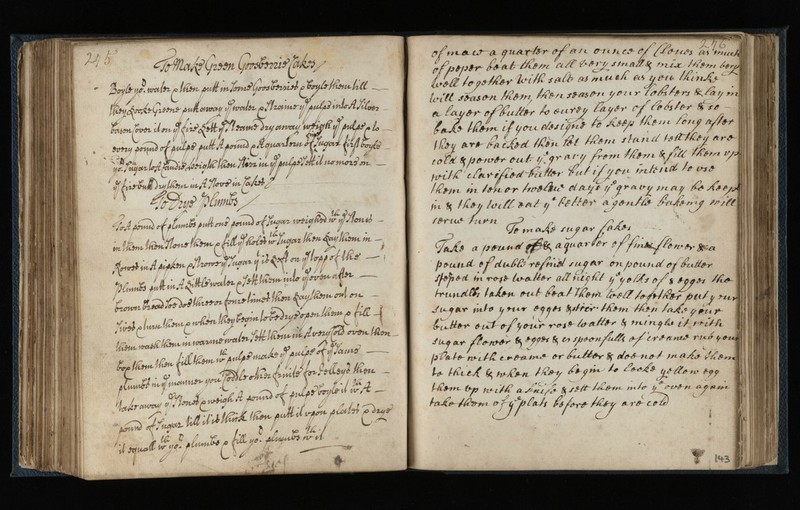 245
To Make Green Goosberrie Cakes
Boyle yor. water & then putt in some Goosberries & boyle them till
they Looke Greene putt away ye water & straine ye pulp into A Silver
bason Cover it on ye fire & lett ye steame dry away weigh ye pulpe & to
every pound of pulpe putt A pound & A quartern of Sugar first boyle
yor. Sugar to Candie height then stirr in ye pulpe lett it no more on
ye fire butt dry them in A Stove in Cakes
To Drye Plumbs
To A pound of plumbs putt one pound of Sugar weighed wth. ye stones
in them then stone them & fill ye holes wth. Sugar then Lay them in
Rowes in A pipken & strowe ye Sugar yt is left on ye topp of the
Plumbs putt in A Little water & sett them into ye oven after
brown bread soe doe three or foure times then Lay them out on
Sives & turn them & when they begin to be drye open them & fill
them wash them in warme water sett them in A very Cold oven then
then fill them wth. pulpe make ye pulpe of ye Same
plumbs in ye manner you Codle other fruite for Jelleys then
take away ye stones & weigh A pound of pulpe boyle it wth. A
pound of Sugar till it is thick then putt it upon plates & drye
it equall wth. yor. plumbs & fill yor. plumbs wth. it
246
of mace a quarter of an ounce of Cloves as much
of peper beat them all very small & mix them very
well together with salt as much as you thinke
will season them, then season your lobsters & lay in
a layer of butter to every layer of lobster & so
bake them if you designe to keep them long after
they are backed then let them stand till they are
cold & power out ye gravy from them & fill them up
with clarified butter but if you intend to use
them in ten or twelve days ye gravy may be keept
in & they will eat ye better a gentle bakeing will
serve turn
To make sugar Cakes
Take a pound & a quarter of fine flower & a
pound of duble refined sugar on pound of butter
steped in rose watter all night ye yolks of 3 egges the
trundles taken out beat them well together put your
sugar into your egges & stir them then take your
butter out of your rose watter & mingle it with
sugar flower & egges & 6 spoonfulls of creame rub your
plate with creame or butter & doe not make them
to thick & when they begin to looke yellow egg
them up with a knife & sett them into ye oven again
take them of ye plats before they are cold
143